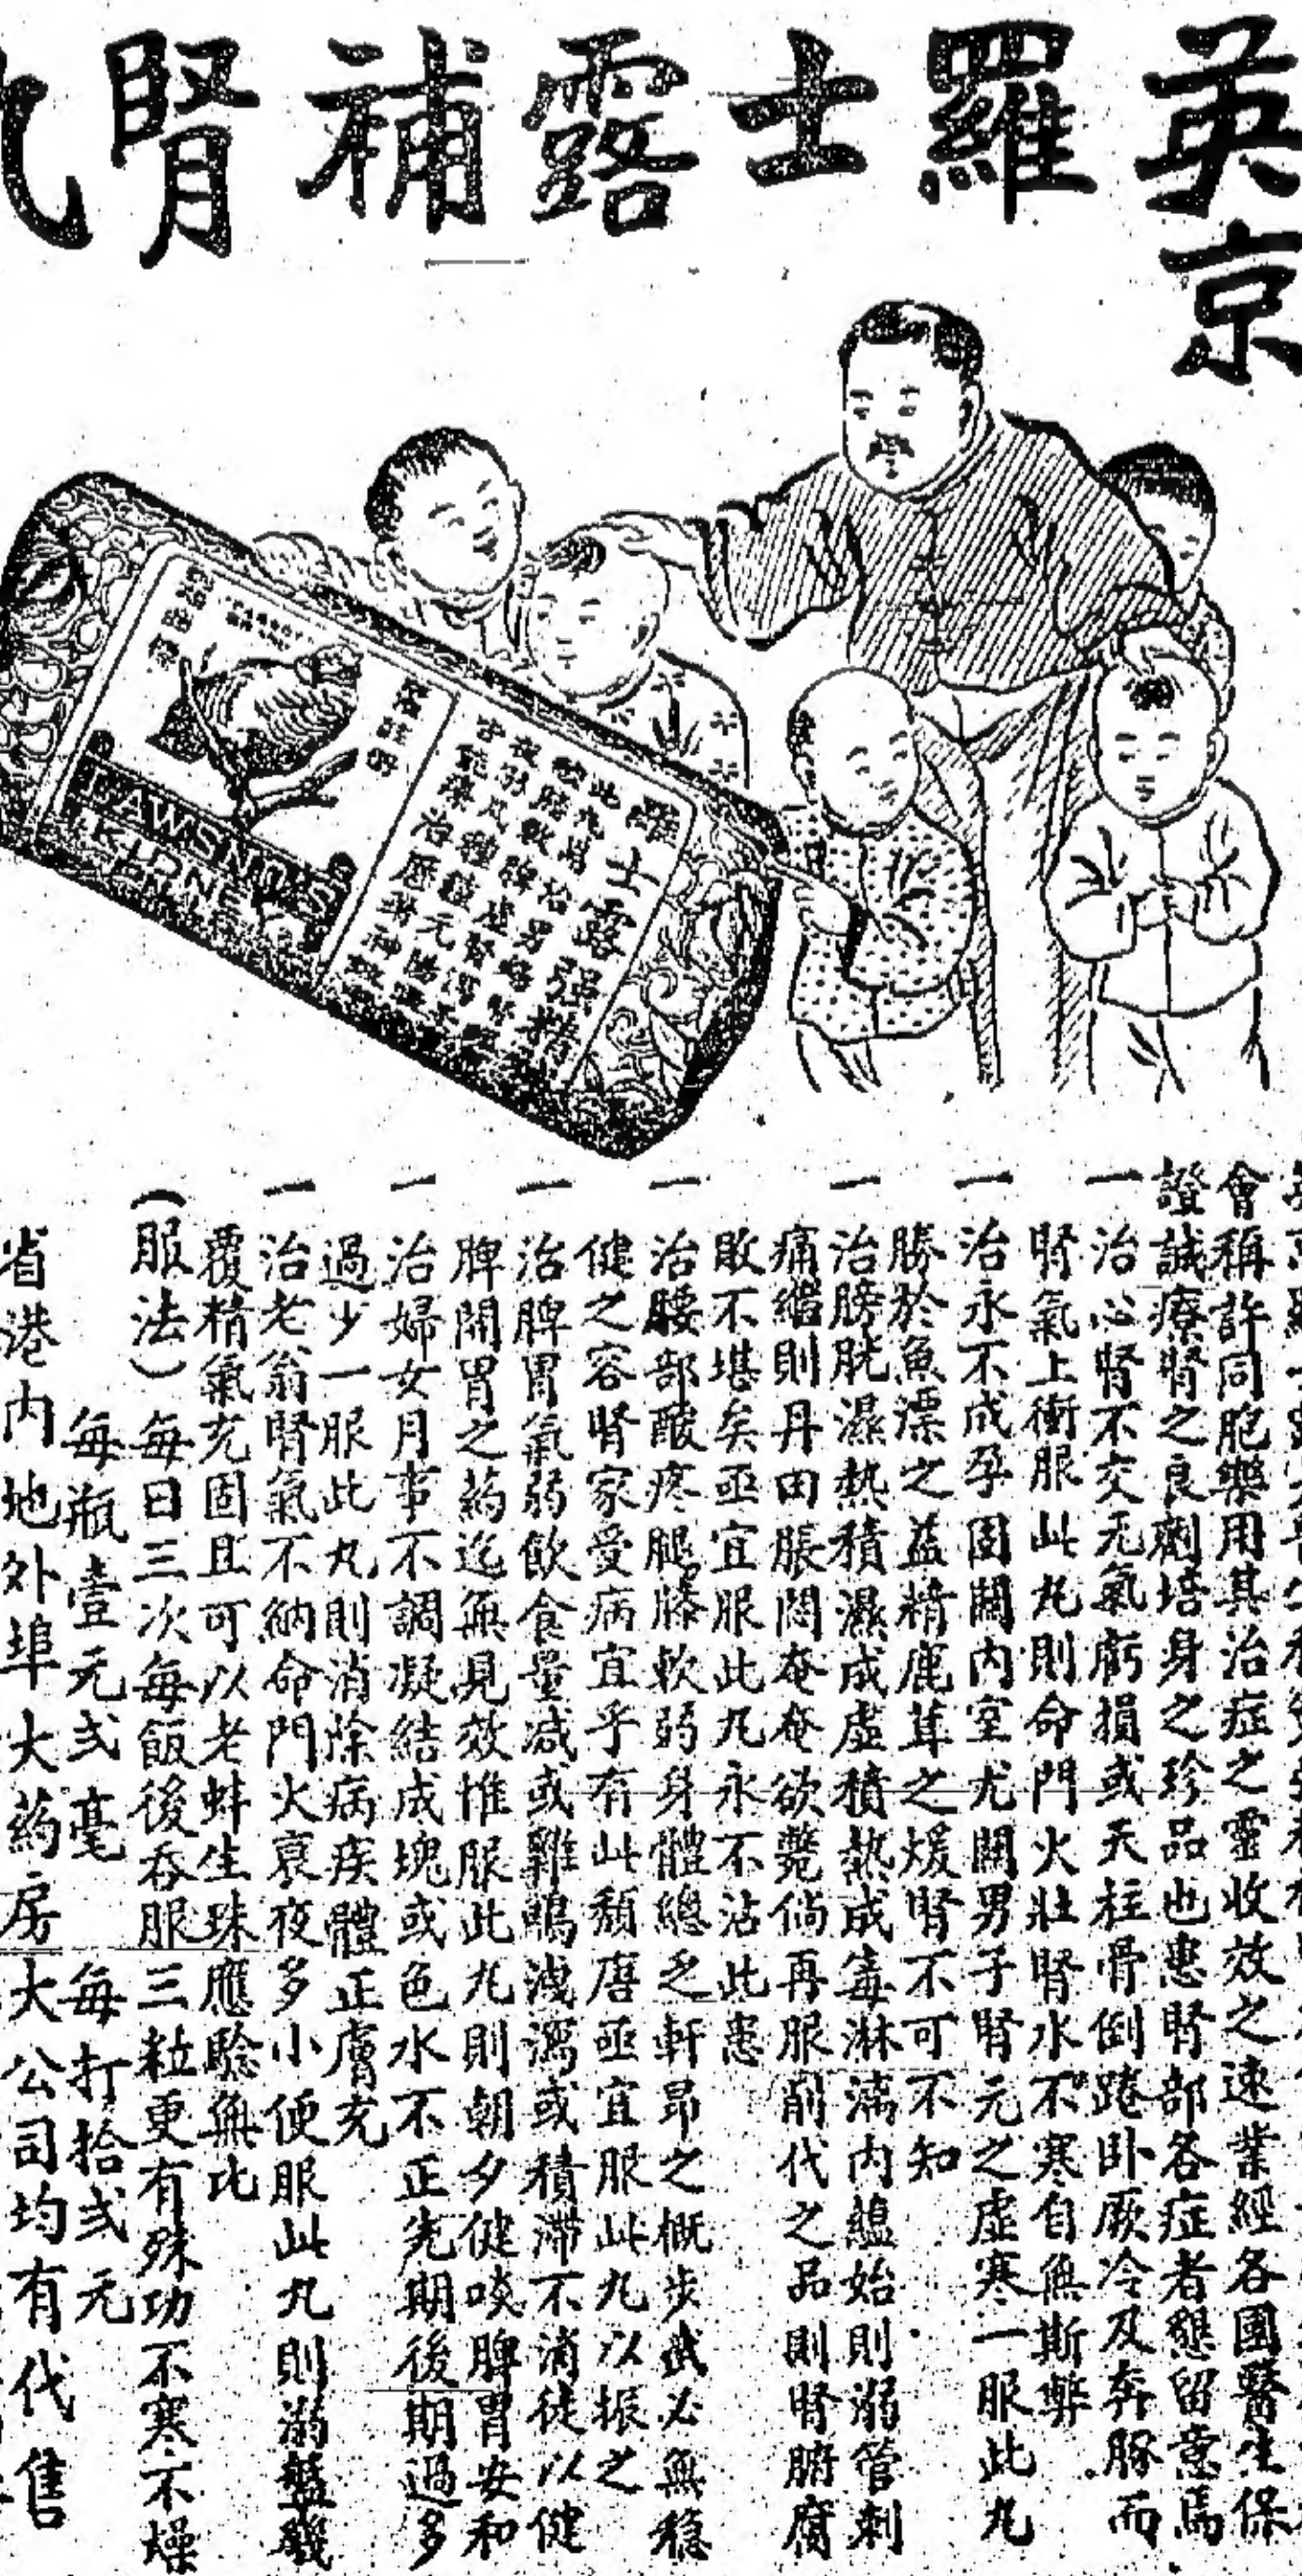 英京
羅士露補腎丸
羅士露強精
LAWSNU'S
KIDNEY
會稱許同胞樂用其治症之靈收效之速業經各國醫生保
證誠療腎之良劑培身之珍品也患腎部各症者懇留意焉
一治心腎不交元氣虧損或天柱骨倒踡卧厥冷及奔豚而
腎氣上衝服此丸則命門火壯腎水不寒自無斯弊
一治永不成孕固關內室尤關男子腎元之虛寒一服此丸
勝於魚漂之益精鹿茸之煖腎不可不知
一治膀胱濕熱積濕成虛積熱成毒淋滴內蘊始則溺管刺
痛繼則丹田脹悶奄奄欲斃倘再服剤代之品則腎腑腐
敗不堪矣亟宜服此丸永不沾此患
一治腰部酸疼腿膝軟弱身體總乏軒昂之概步武必無穩
健之容腎家受病宜乎有此頹唐亟宜服此丸以振之
一治脾胃氣弱飲食量減或雞鳴洩瀉或積滯不消徒以健
脾開胃之葯迄無見效惟服此丸則朝夕健啖脾胃安和
一治婦女月事不調凝結成塊或色水不正先期後期過多
過少一服此丸則消除病疾體正膚充
一治老翁腎氣不納命門火衰夜多小便服此丸則溺盤
覆精氣充固且可以老蚌生珠應驗無比
(服法)每日三次每飯後吞服三粒更有殊功不寒不燥
每瓶壹元弍毫 每打拾弍元
省港內地外埠大葯房大公司均有代售